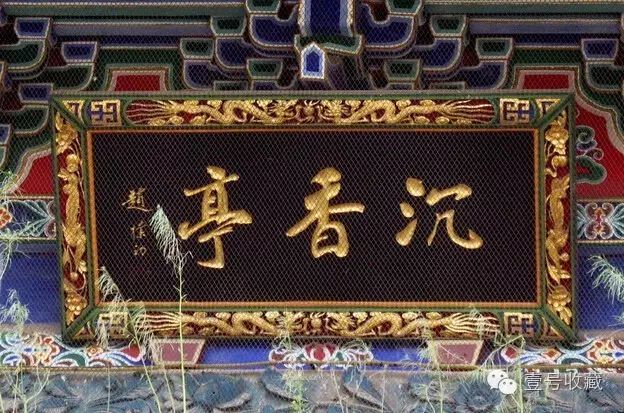 沉香亭
趙樸初
壹号收藏